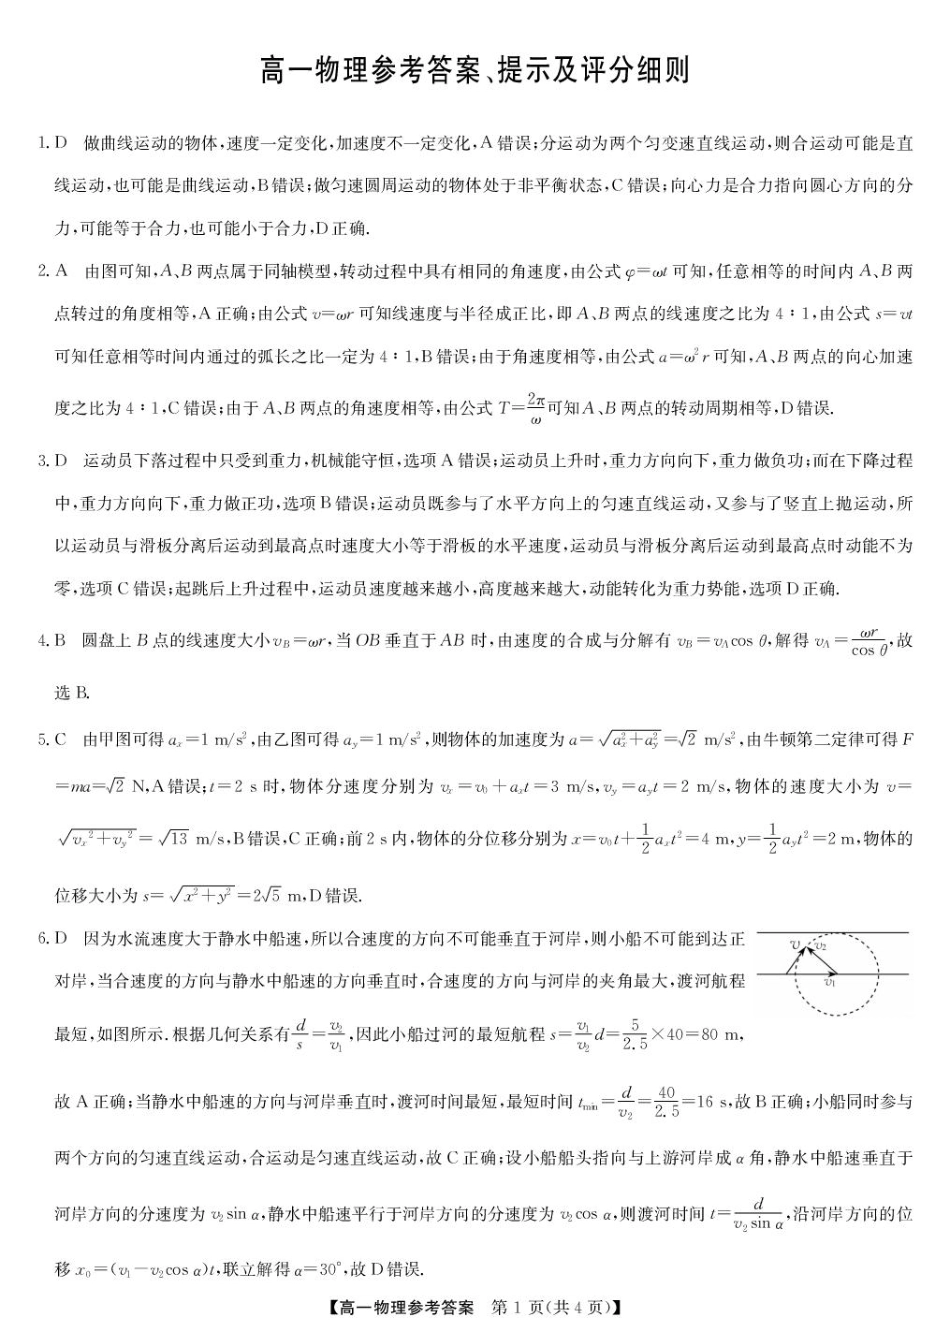 高一物理参考答案、提示及评分细则
1. D 做曲线运动的物体,速度一定变化,加速度不一定变化,A 错误;分运动为两个匀变速直线运动,则合运动可能是直
线运动,也可能是曲线运动,B 错误;做匀速圆周运动的物体处于非平衡状态,C 错误;向心力是合力指向圆心方向的分
力,可能等于合力,也可能小于合力,D 正确.
2. A 由图可知,A、B 两点属于同轴模型,转动过程中具有相同的角速度,由公式 φ=ωt 可知,任意相等的时间内 A、B 两
点转过的角度相等,A 正确;由公式 v=ωr 可知线速度与半径成正比,即 A、B 两点的线速度之比为 4∶1,由公式 s=vt
可知任意相等时间内通过的弧长之比一定为 4∶1,B 错误;由于角速度相等,由公式 a=ω²r 可知,A、B 两点的向心加速
度之比为 4∶1,C 错误;由于 A、B 两点的角速度相等,由公式 T=2π/ω 可知 A、B 两点的转动周期相等,D 错误.
3. D 运动员下落过程中只受到重力,机械能守恒,选项 A 错误;运动员上升时,重力方向向下,重力做负功;而在下降过程
中,重力方向向下,重力做正功,选项 B 错误;运动员既参与了水平方向上的匀速直线运动,又参与了竖直上抛运动,所
以运动员与滑板分离后运动到最高点时速度大小等于滑板的水平速度,运动员与滑板分离后运动到最高点时动能不为
零,选项 C 错误;起跳后上升过程中,运动员速度越来越小,高度越来越大,动能转化为重力势能,选项 D 正确.
4. B 圆盘上 B 点的线速度大小 v_B=ωr,当 OB 垂直于 AB 时,由速度的合成与分解有 v_B=v_A cos θ,解得 v_A=ωr/cos θ,故
选 B.
5. C 由甲图可得 a_x=1 m/s²,由乙图可得 a_y=1 m/s²,则物体的加速度为 a=√(a_x²+a_y²)=√2 m/s²,由牛顿第二定律可得 F
=ma=√2 N,A 错误;t=2 s 时,物体分速度分别为 v_x=v₀+a_x t=3 m/s,v_y=a_y t=2 m/s,物体的速度大小为 v=
√(v_x²+v_y²)=√13 m/s,B 错误,C 正确;前 2 s 内,物体的分位移分别为 x=v₀t+1/2 a_x t²=4 m,y=1/2 a_y t²=2 m,物体的
位移大小为 s=√(x²+y²)=2√5 m,D 错误.
6. D 因为水流速度大于静水中船速,所以合速度的方向不可能垂直于河岸,则小船不可能到达正
对岸,当合速度的方向与静水中船速的方向垂直时,合速度的方向与河岸的夹角最大,渡河航程
v v₂
v₁
最短,如图所示.根据几何关系有 d/s=v₂/v₁,因此小船过河的最短航程 s=v₁/v₂ d=5/2.5×40=80 m,
故 A 正确;当静水中船速的方向与河岸垂直时,渡河时间最短,最短时间 t_min=d/v₂=40/2.5=16 s,故 B 正确;小船同时参与
两个方向的匀速直线运动,合运动是匀速直线运动,故 C 正确;设小船船头指向与上游河岸成 α 角,静水中船速垂直于
河岸方向的分速度为 v₂ sin α,静水中船速平行于河岸方向的分速度为 v₂ cos α,则渡河时间 t=d/(v₂ sin α),沿河岸方向的位
移 x₀=(v₁−v₂cos α)t,联立解得 α=30°,故 D 错误.
【高一物理参考答案 第 1 页(共 4 页)】